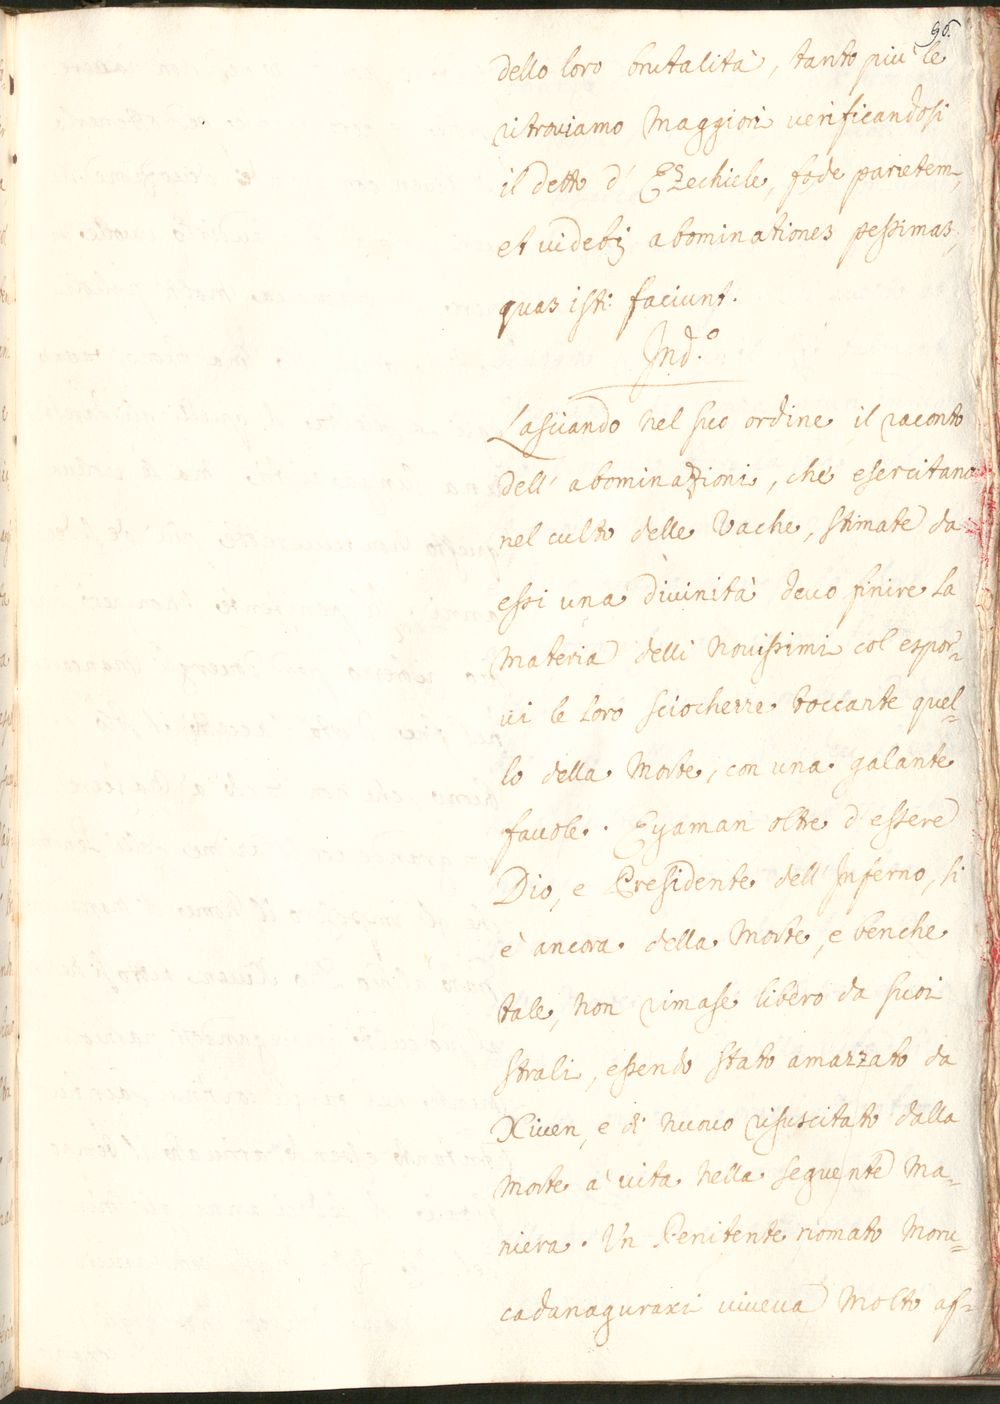 96.
dello loro brutalità, tanto più le
ritroviamo maggiori verificandosi
il detto d' Ezechiele, fode parietem,
et videbis abominationes pessimas,
quas isti faciunt.
Ind.o
Lasciando nel suo ordine il raconto
dell' abominazioni, che esercitano
nel culto delle Vache, stimate da
essi una divinità devo finire la
materia delli Novissimi col espor-
vi le loro sciocherre toccante quel-
lo della Morte, con una galante
favole. Eyaman oltre d'essere
Dio, e Presidente dell' Inferno, si
è ancora della Morte, e benche
tale, non rimase libero da suoi
strali, essendo stato amazzato da
Xiven, e di nuovo risuscitato dalla
morte a' vita nella seguente ma-
niera. Un Penitente nomato Moru-
cadanaguraxi viveva molto af-